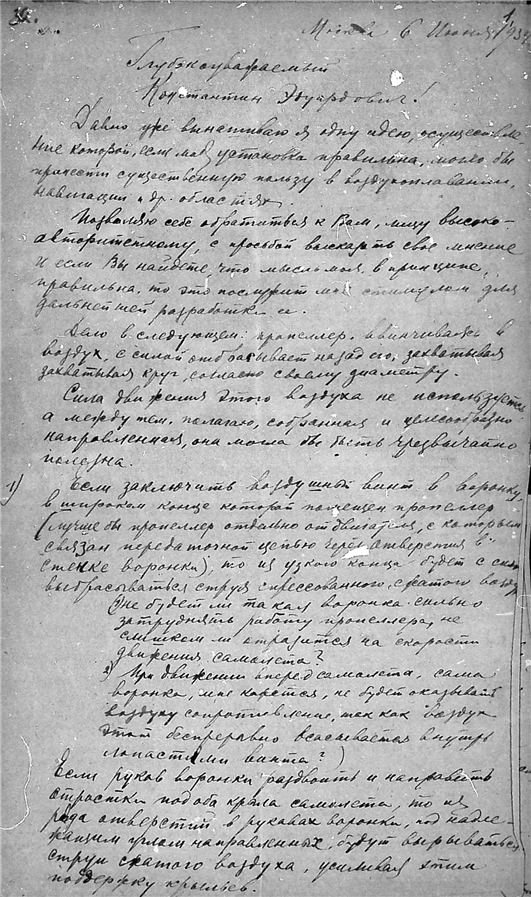 Москва 6 Июня 1934
Глубокоуважаемый
Константин Эдуардович!
Давно уже вынашиваю я одну идею, осуществле-
ние которой, если моя установка правильна, могло бы
принести существенную пользу в воздухоплавании,
навигации и др. областях.
Позволяю себе обратиться к Вам, лицу высоко-
авторитетному, с просьбой высказать свое мнение
и если Вы найдете, что мысль моя, в принципе,
правильна, то это послужит мне стимулом для
дальнейшей разработки ее.
Дело в следующем: пропеллер, ввинчиваясь в
воздух, с силой отбрасывает назад его, захватывая
захватывая круг, согласно своему диаметру.
Сила движения этого воздуха не используется
а между тем, полагаю, собранная и целесообразно
направленная, она могла бы быть чрезвычайно
полезна.
1) Если заключить воздушный винт в воронку,
в широком конце которой помещен пропеллер
(лучше бы пропеллер отдельно от двигателя, с которым
связан передаточной цепью через отверстия в
стенке воронки), то из узкого конца будет с
выбрасываться струя спрессованного, сжатого
1) не будет ли такая воронка сильно
затруднять работу пропеллера, не
слишком ли отразится на скорости
движения самолета?
2) При движении вперед самолета, сама
воронка, мне кажется, не будет оказывать
воздуху сопротивление, так как воздух
этот беспрерывно всасывается внутрь
лопастями винта?)
Если рукав воронки раздвоить и направить
отростки подоба крыла самолета, то из
ряда отверстий в рукавах воронки, под надле-
жащим углом направленных, будут вырываться
струи сжатого воздуха, усиливая этим
поддержку крыльев.